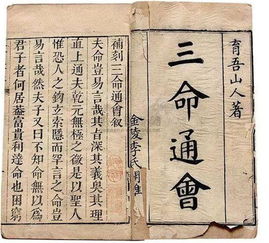 育吾山人著
三命通會
金陵李氏
補刻三命通會敘
夫命豈易言哉其旨深其義奧其理
直上通夫乾元無極之微是以聖人
惟恐人之鈎玄索隱而罕言之命豈
易言哉然夫子又曰不知命無以為
君子者何居葢富貴利達命也困窮